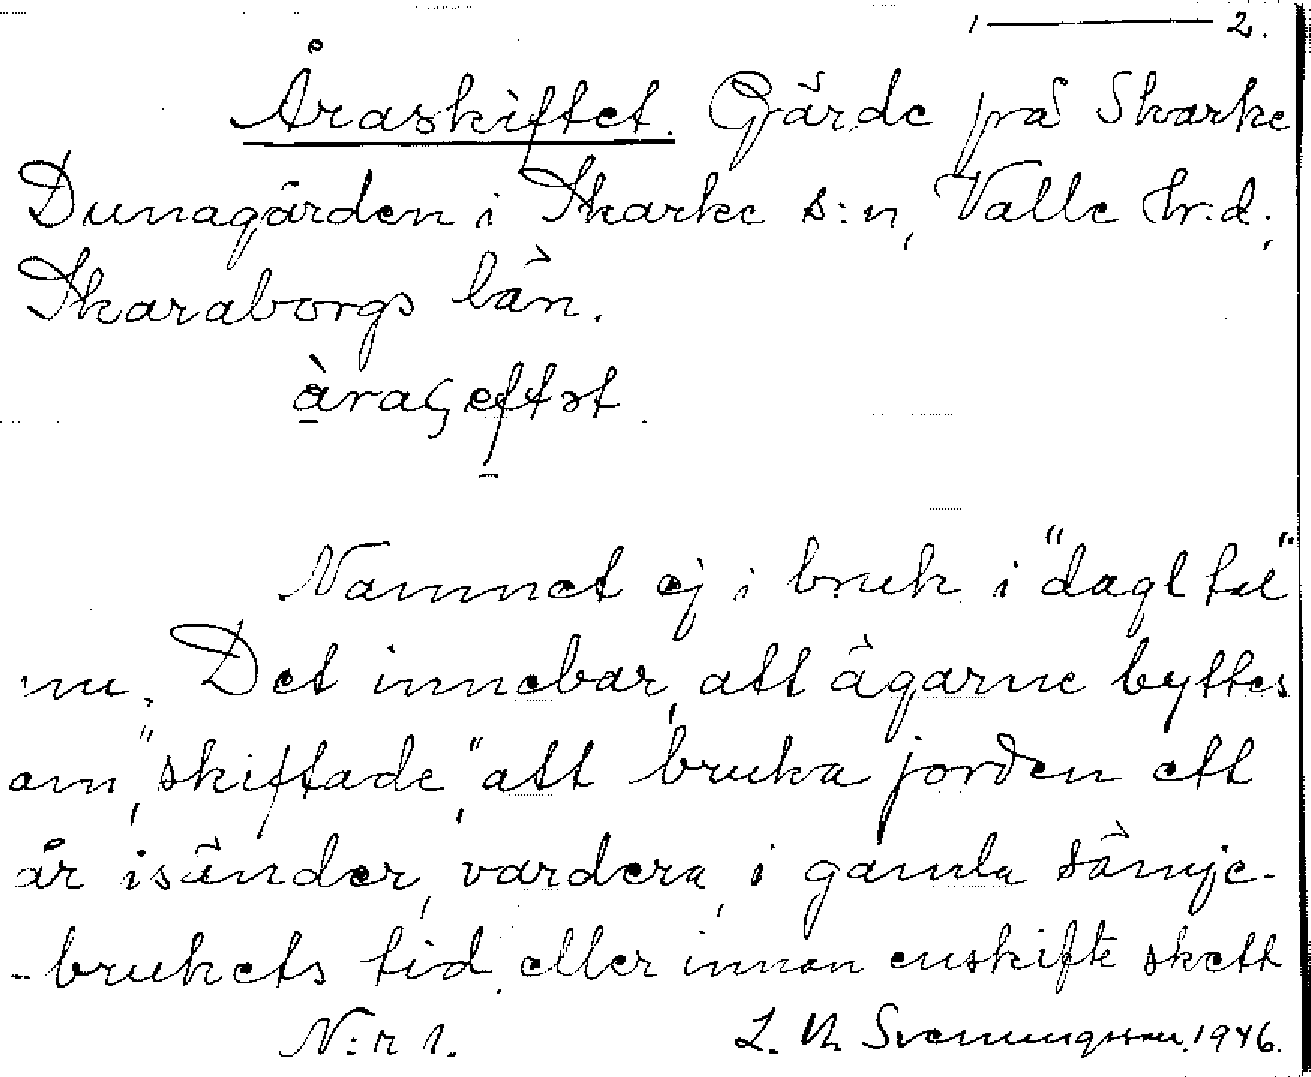 1 — 2.
Åraskiftet. Gärde på Skarke
Dunagården i Skarke s:n, Valle hr:d,
Skaraborgs län.
Namnet ej i bruk i "dagl tal"
nu. Det innebar, att ägarne byttes
om, "skiftade", att bruka jorden ett
år isänder, vardera, i gamla sämje-
-brukets tid, eller innan enskifte skett
N:r 1. L. Svenungsson. 1946.